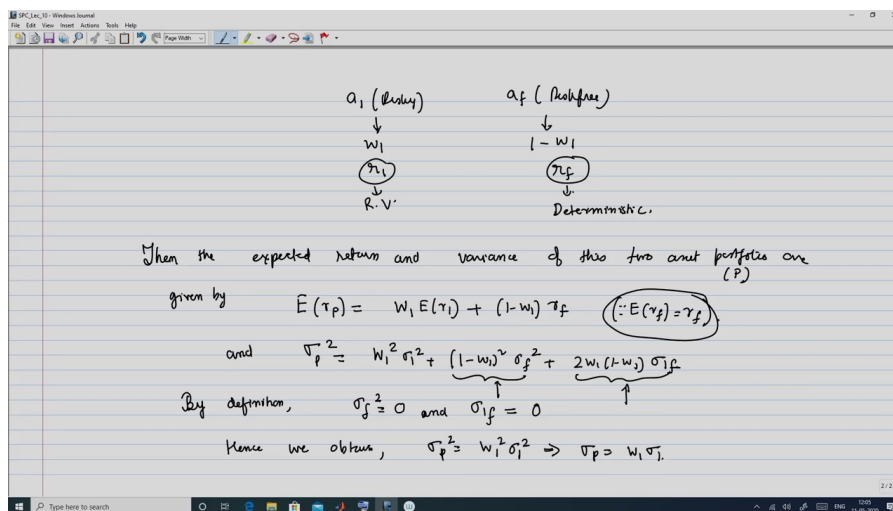 SPC_Lec_10 - Windows Journal
File Edit View Insert Actions Tools Help
Page Width
a₁ (Risky) a_f (Riskfree)
↓ ↓
w₁ 1 - w₁
r₁ r_f
↓ ↓
R.V. Deterministic.
Then the expected return and variance of this two asset portfolio are
(P)
given by E(r_P) = W₁ E(r₁) + (1-w₁) r_f (∵ E(r_f) = r_f)
and σ_P² = W₁² σ₁² + (1-w₁)² σ_f² + 2w₁(1-w₁) σ_1f
By definition, σ_f² = 0 and σ_1f = 0
Hence we obtain, σ_P² = W₁² σ₁² ⇒ σ_P = W₁ σ₁.
2/2
Type here to search ENG 12:05
11-05-2020